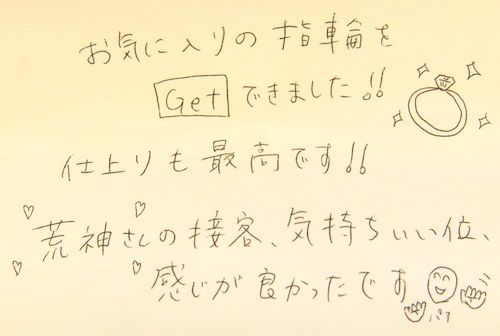 お気に入りの指輪を
Getできました!!
仕上りも最高です!!
荒神さんの接客、気持ちいい位、
感じが良かったです
パチ